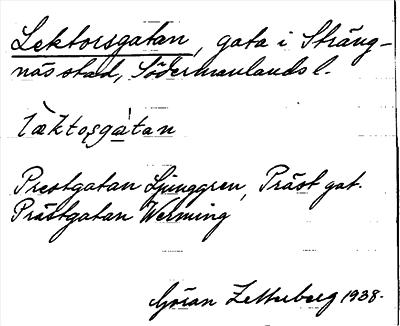 Lektorsgatan, gata i Sträng-
näs stad, Södermanlands l.
læ̀ktoşgátan
Prestgatan Ljunggren, Präst gat.
Prästgatan Werming
Göran Zetterberg 1938.